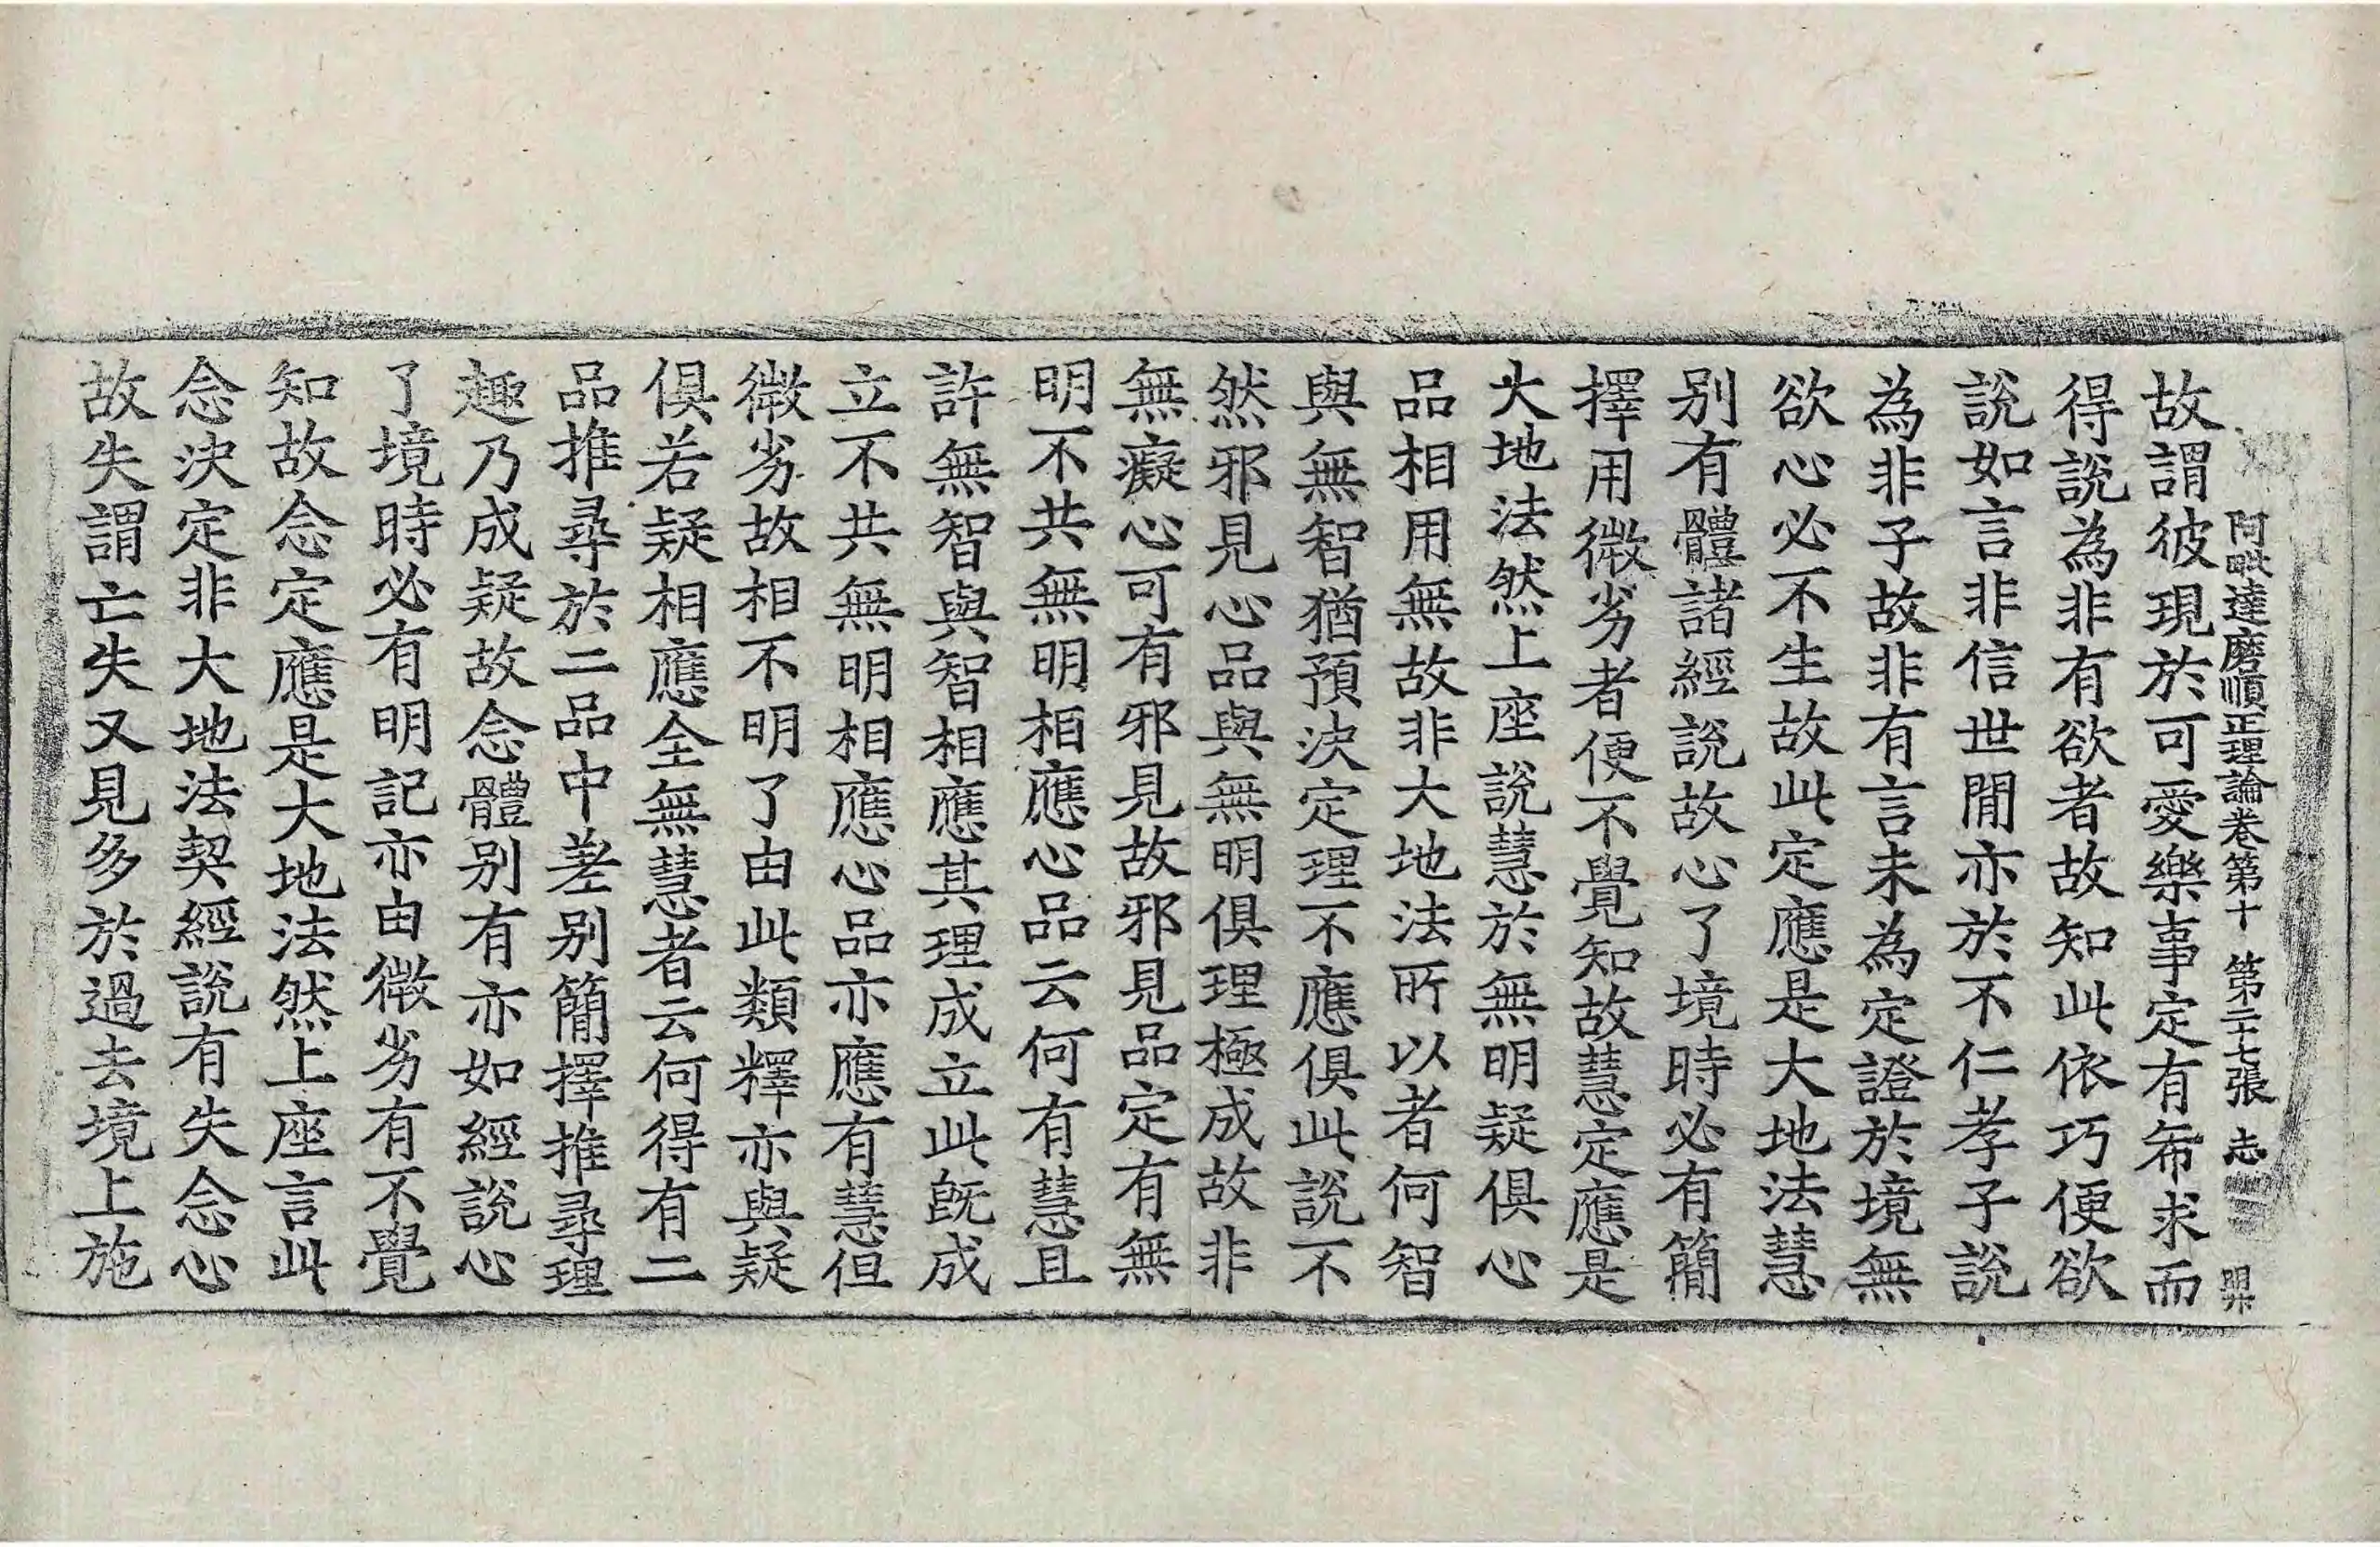 阿毗達磨順正理論卷第十　第二十七張　志
故謂彼現於可愛樂事定有希求而
得說為非有欲者故知此依巧便欲
說如言非信世閒亦於不仁孝子說
為非子故非有言未為定證於境無
欲心必不生故此定應是大地法慧
別有體諸經說故心了境時必有簡
擇用微劣者便不覺知故慧定應是
大地法然上座說慧於無明疑俱心
品相用無故非大地法所以者何智
與無智猶預決定理不應俱此說不
然邪見心品與無明俱理極成故非
無癡心可有邪見故邪見品定有無
明不共無明相應心品云何有慧且
許無智與智相應其理成立此旣成
立不共無明相應心品亦應有慧但
微劣故相不明了由此類釋亦與疑
俱若疑相應全無慧者云何得有二
品推尋於二品中差別簡擇推尋理
趣乃成疑故念體別有亦如經說心
了境時必有明記亦由微劣有不覺
知故念定應是大地法然上座言此
念決定非大地法契經說有失念心
故失謂亡失又見多於過去境上施